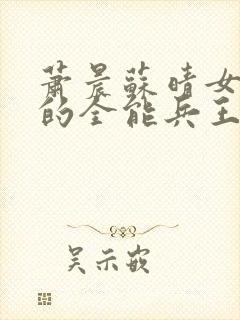 蕭晨蘇晴女
的全能兵王
吴示嵌